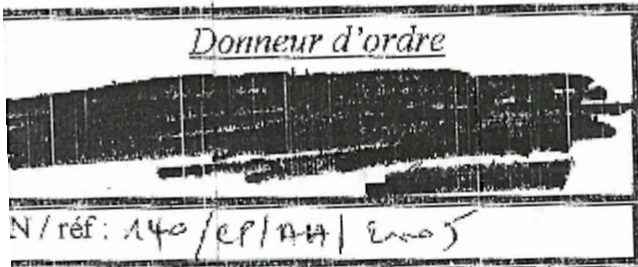 Donneur d'ordre
N / réf : 140 / CP / AH / 2005